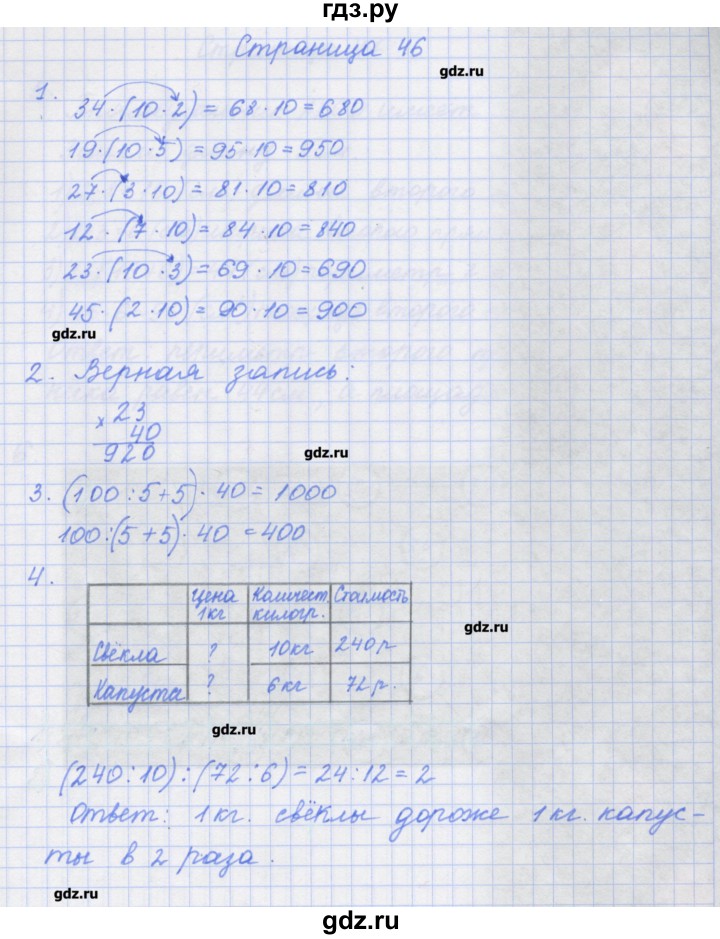 гдз.ру
Страница 46
gdz.ru
1.
34·(10·2) = 68·10=680
19·(10·5) = 95·10=950
27·(3·10) = 81·10=810
12·(7·10) = 84·10=840
23·(10·3) = 69·10=690
45·(2·10) = 90·10=900
gdz.ru
2. Верная запись:
× 23
40
920
gdz.ru
3. (100:5+5)·40=1000
100:(5+5)·40=400
4.
Цена 1кг Количест. килогр. Стоимость
gdz.ru
Свёкла ? 10кг 240р
Капуста ? 6кг 72р.
gdz.ru
(240:10):(72:6)=24:12=2
Ответ: 1кг. свёклы дороже 1кг. капус-
ты в 2 раза.
gdz.ru
gdz.ru